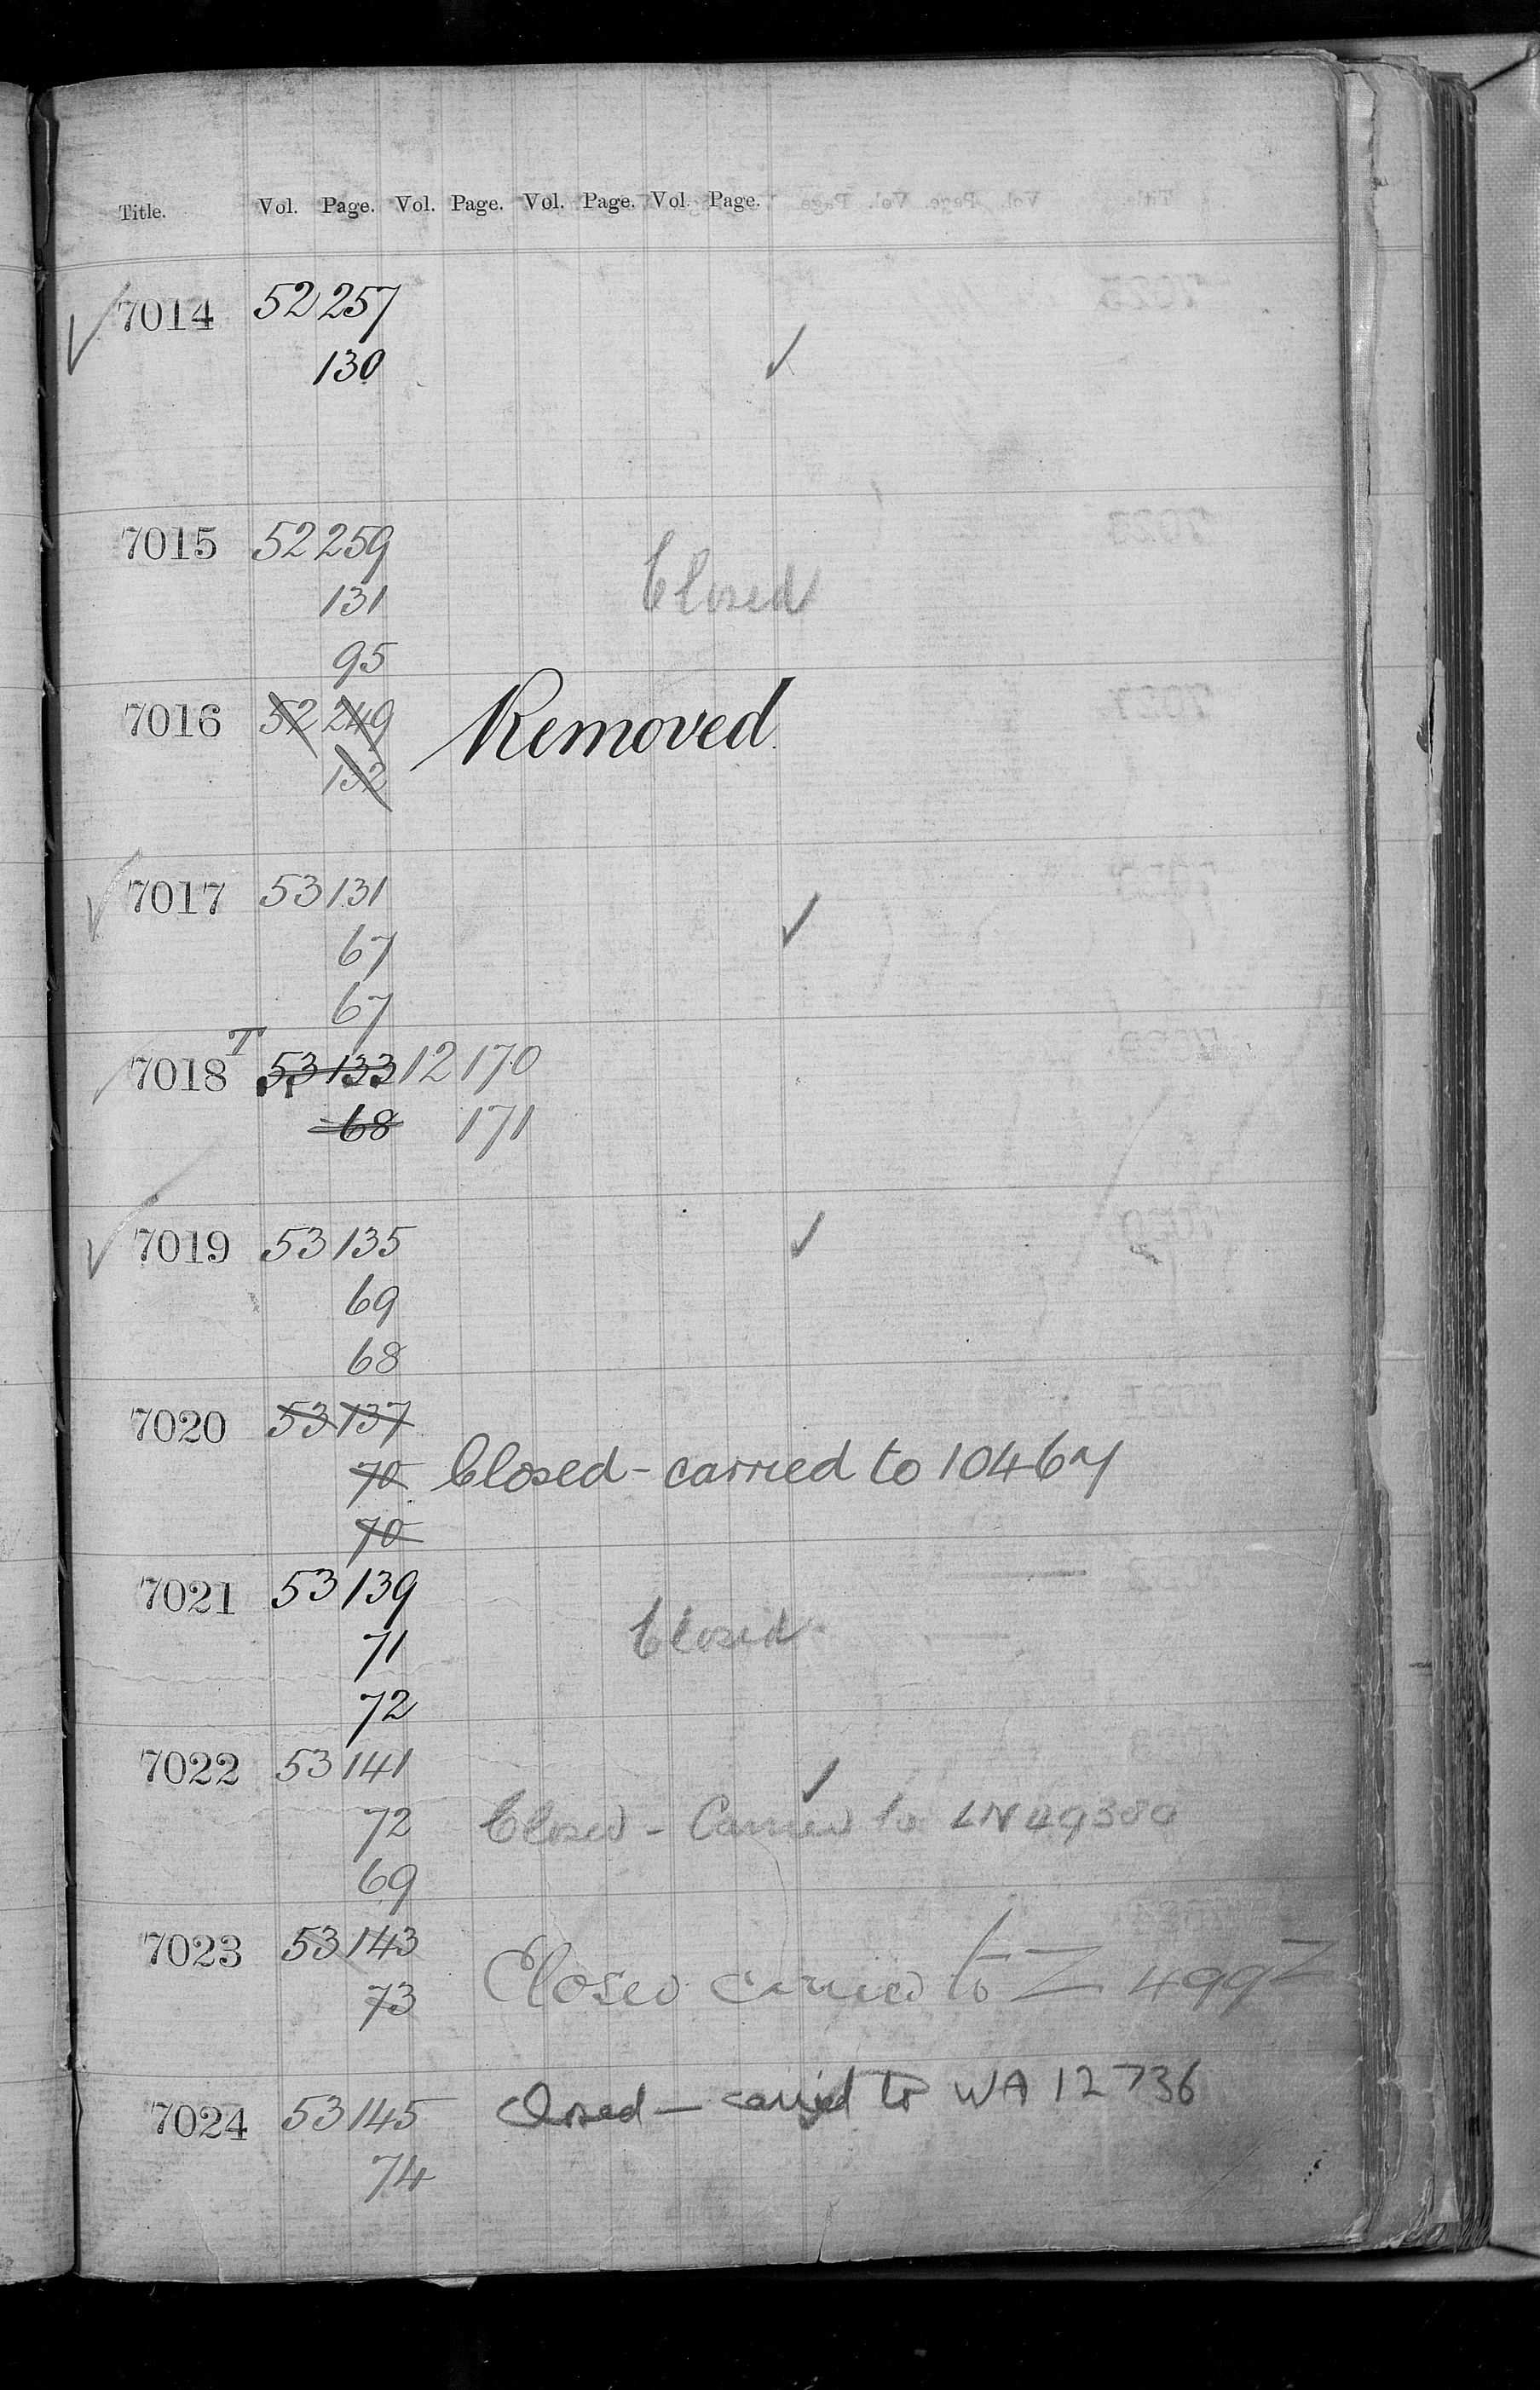 Title. Vol. Page. Vol. Page. Vol. Page. Vol. Page.
7014 52 257
130 ✓
7015 52 259
131 Closed
95
7016 52 249 Removed.
132
7017 53 131
67 ✓
67
7018 T 53 133 12 170
68 171
7019 53 135 ✓
69
68
7020 53 137
70 Closed - carried to 10467
70
7021 53 139
71 Closed
72
7022 53 141 ✓
72 Closed - Carried to LN 49380
69
7023 53 143
73 Closed carried to Z 499Z
7024 53 145 Closed - carried to WA 12736
74